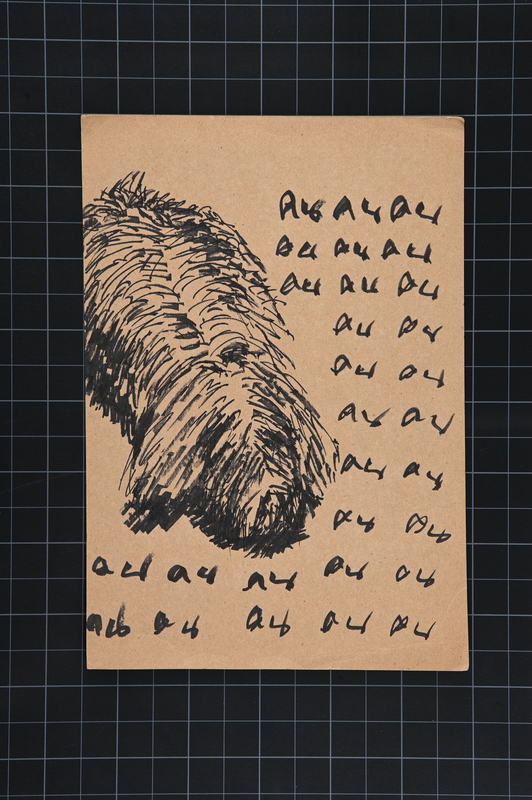 Au Au Au
au au au
au au au
au au
au au
au au
au au
au au
au au au au au
au au au au au